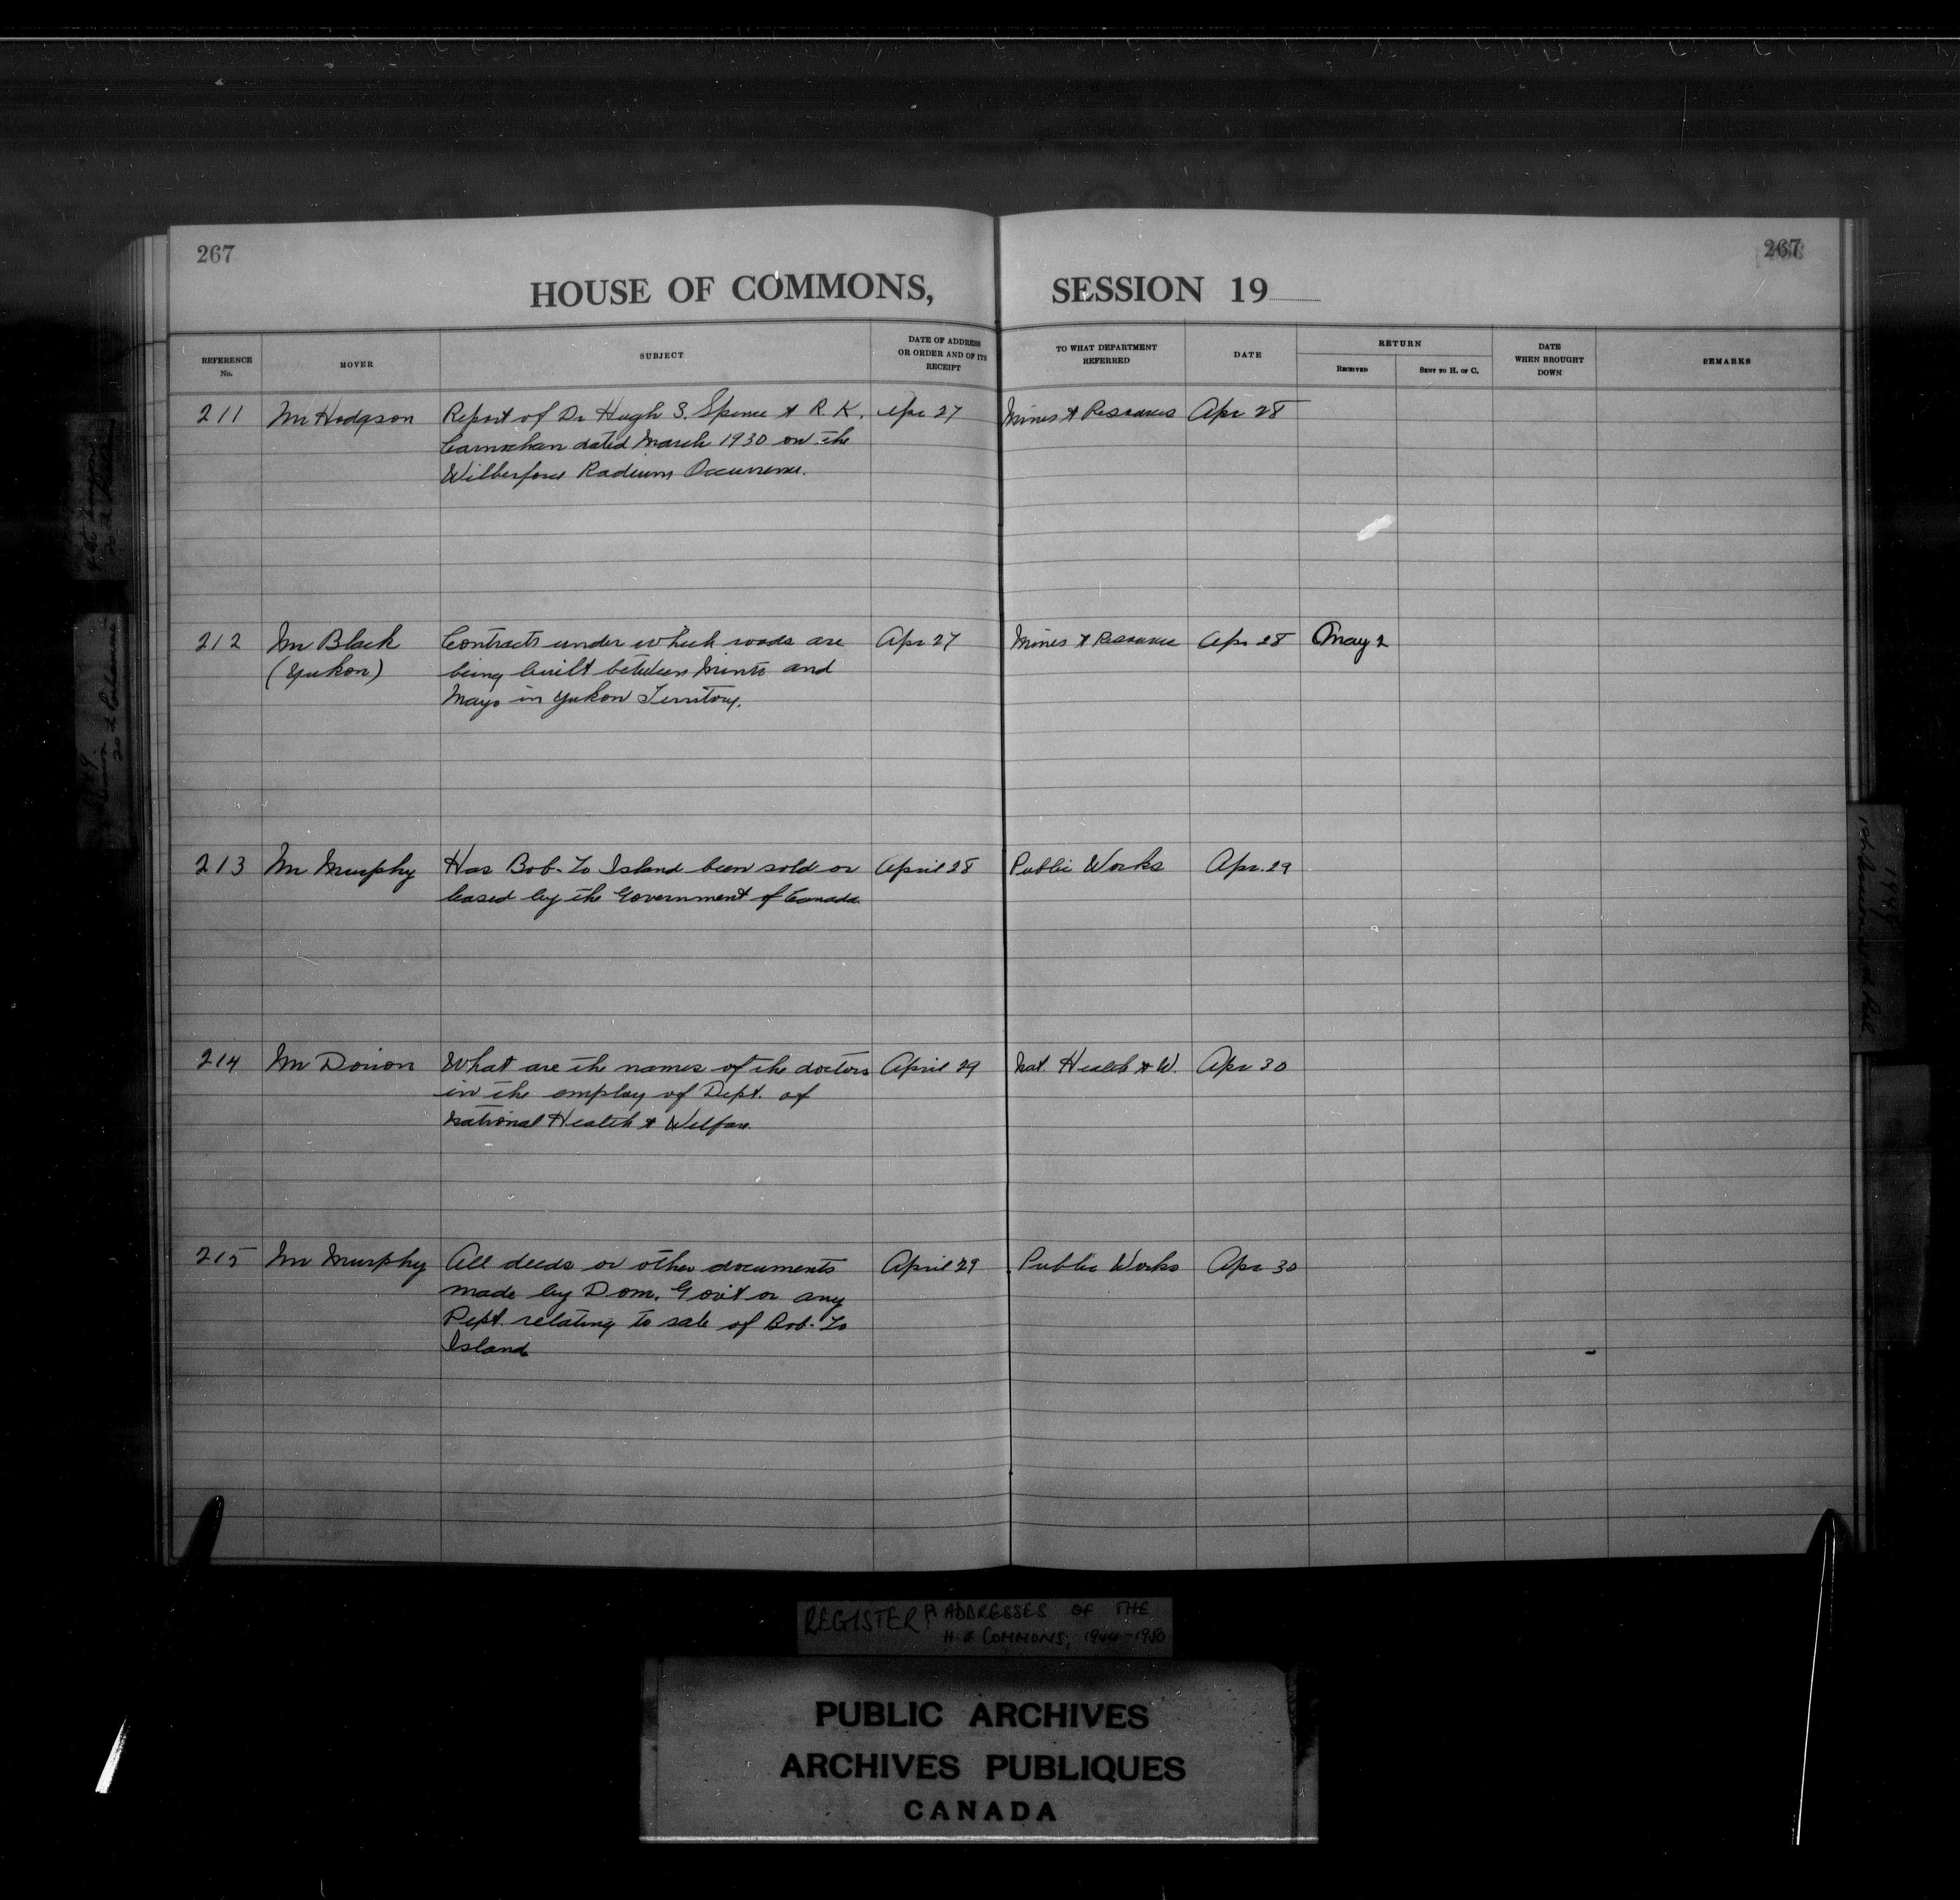 267
267
HOUSE OF COMMONS, SESSION 19
REFERENCE No.
MOVER
SUBJECT
DATE OF ADDRESS OR ORDER AND OF ITS RECEIPT
TO WHAT DEPARTMENT REFERRED
DATE
RETURN
RECEIVED
SENT TO H. OF C.
DATE WHEN BROUGHT DOWN
REMARKS
211 Mr Hodgson Report of Dr Hugh S. Spence & R. K. Apr 27 Mines & Resources Apr 28
Carnochan dated March 1930 on the
Wilberforce Radium Occurrence.
212 Mr Black Contracts under which roads are Apr 27 Mines & Resource Apr 28 May 2
(Yukon) being built between Minto and
Mayo in Yukon Territory.
213 Mr Murphy Has Bob-Lo Island been sold or April 28 Public Works Apr. 29
leased by the Government of Canada
214 Mr Dorion What are the names of the doctors April 29 Nat. Health & W. Apr 30
in the employ of Dept. of
National Health & Welfare
215 Mr Murphy All deeds or other documents April 29 Public Works Apr 30
made by Dom. Gov't or any
Dept. relating to sale of Bob-Lo
Island
REGISTER OF ADDRESSES OF THE
H. OF COMMONS, 1944-1950
PUBLIC ARCHIVES
ARCHIVES PUBLIQUES
CANADA